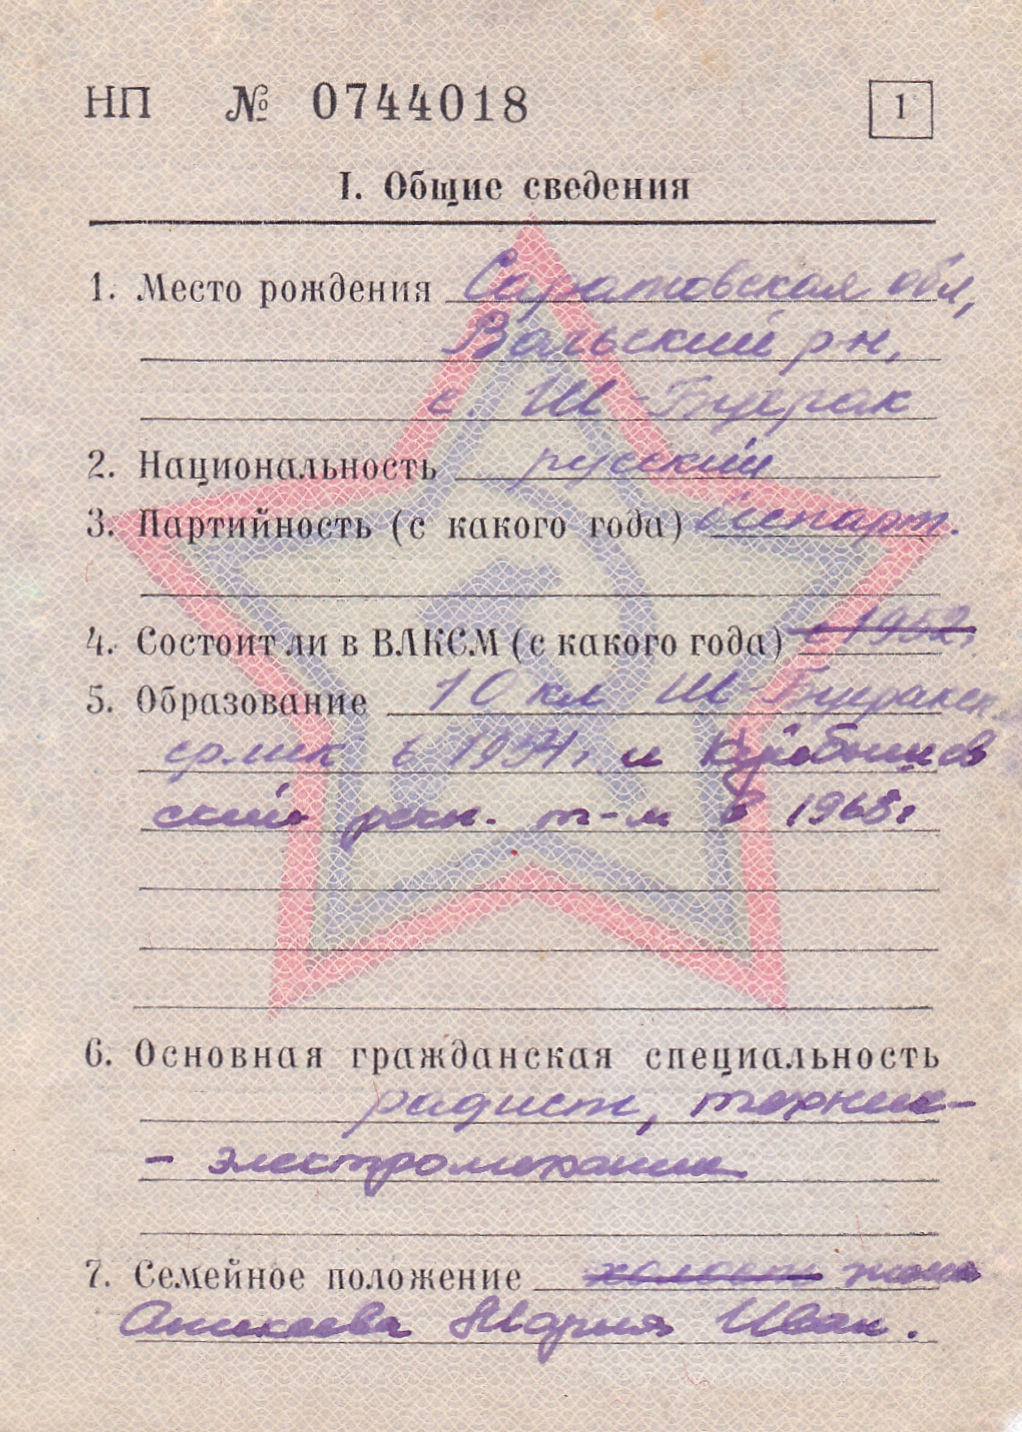 НП № 0744018 1
I. Общие сведения
1. Место рождения Саратовская обл,
Вольский р-н,
с. Ш-Буерак
2. Национальность русский
3. Партийность (с какого года) беспарт.
4. Состоит ли в ВЛКСМ (с какого года) с 1952г.
5. Образование 10 кл Ш-Буеракск
в 1954г. и Куйбышев
ский речн. т-м в 1968г
6. Основная гражданская специальность
радист, техник-
- электромеханик
7. Семейное положение холост жена
Аникеева Мария Иван.